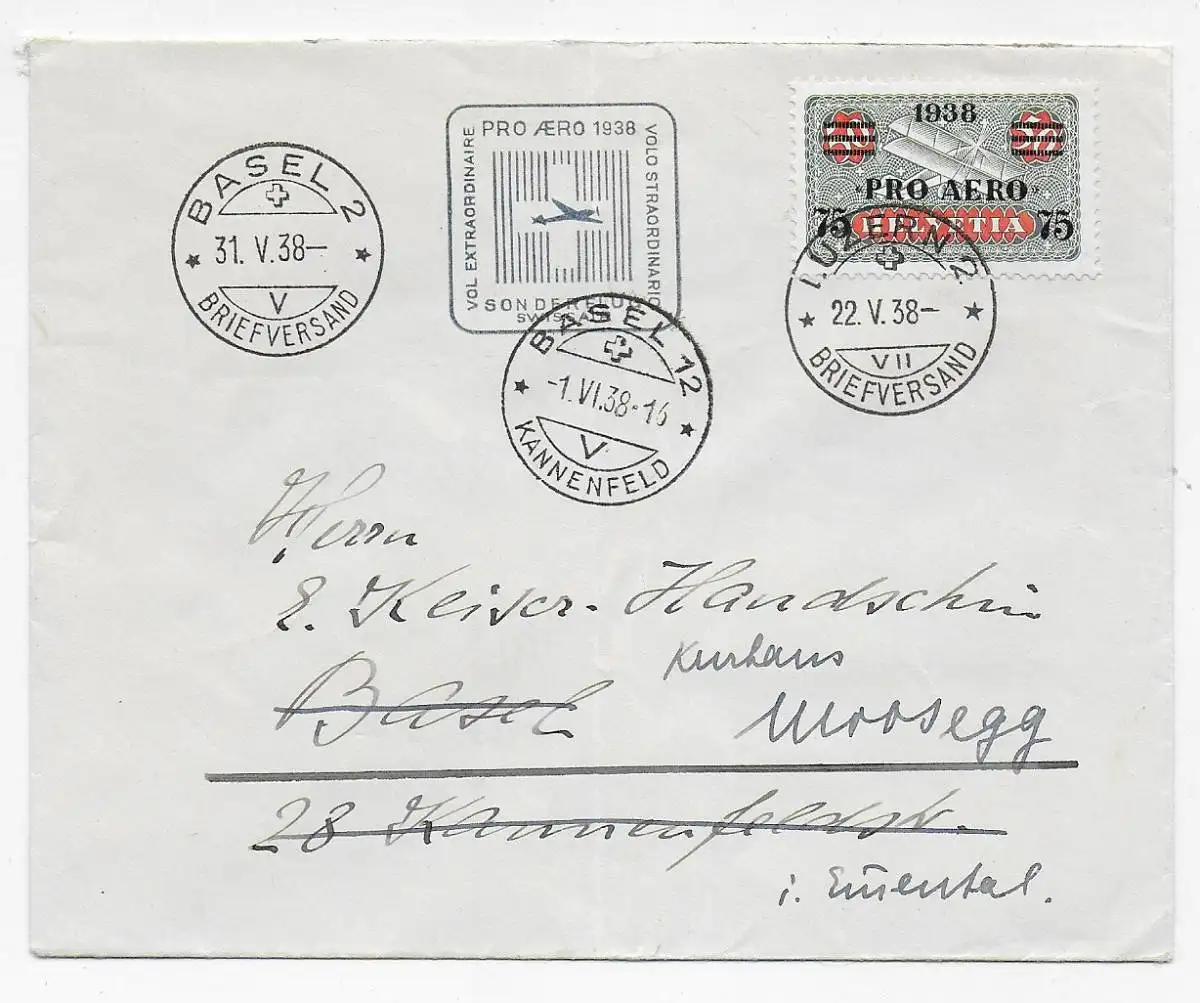 BASEL 2
31. V. 38–
V
BRIEFVERSAND
PRO ÆRO 1938
VOL EXTRAORDINAIRE
VOLO STRAORDINARIO
SONDERFLUG
SWISSAIR
1938
PRO AERO
75 HELVETIA 75
LUZERN 2
22. V. 38–
VII
BRIEFVERSAND
BASEL 12
-1. VI. 38-16
V
KANNENFELD
Herrn
E. Keiser-Handschin
Kurhaus
Basel Moosegg
28 Kannenfeldstr.
i. Emmental.